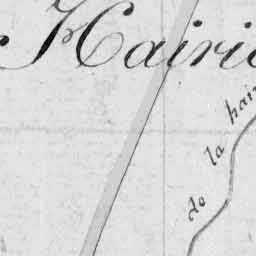 Hairie
de la hair